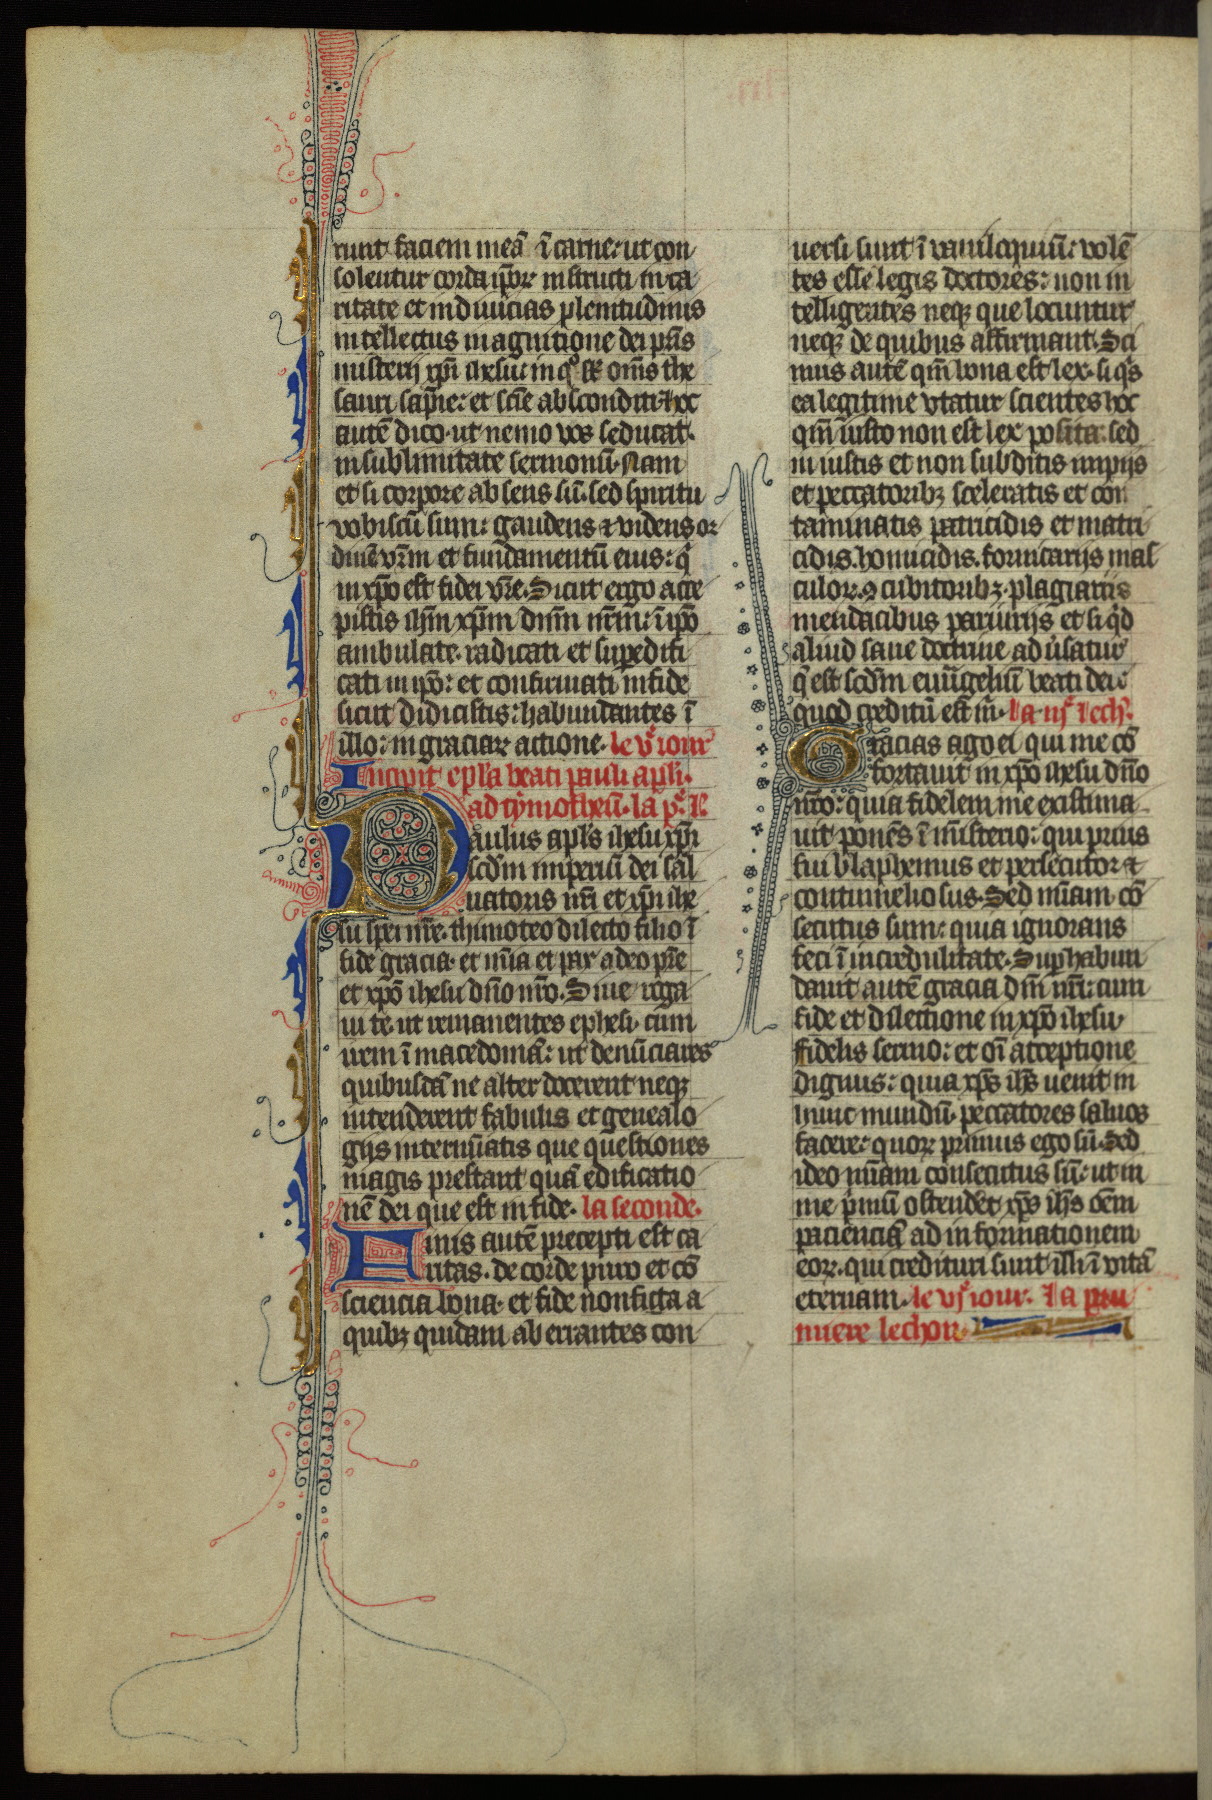 runt faciem meā ī carne: ut con
solentur corda ip̄or̄ꝝ instructi in ca
ritate et in diuicias plenitudinis
intellectus in agnitione dei pr̄is
misterij xp̄i ihesu: in qͦ sūt om̄s the
sauri sap̄ie: et sc̄ie absconditi. hoc
autē dico. ut nemo vos seducat.
in sublimitate sermonū. Nam
et si corpore absens sū. sed spiritu
vobiscū sum: gaudens ⁊ videns or
dinē vr̄m et fundamentū eius: q̄
in xp̄o est fidei vr̄e. Sicut ergo acce
pistis ihm̄ xp̄m dn̄m nr̄m: ī ip̄o
ambulate. radicati et supedifi
cati in ip̄o: et confirmati in fide
sicut didicistis: habundantes ī
illo: in graciaꝝ actione. le vͤ iour
Incipit ep̄la beati pauli apl̄i.
ad tymotheū. la pͤ. l
Paulus apl̄s ihesu xp̄i
scd̄m imperiū dei sal
uatoris nr̄i et xp̄i ihe
su spei nr̄e. thimoteo dilecto filio ī
fide gracia. et mīa et pax a deo pr̄e
et xp̄o ihesu dn̄o nr̄o. Siue roga
ui te ut remanentes ephesi. cum
irem ī macedoniā: ut denūciares
quibusdā ne alter docerent neqꝫ
intenderent fabulis et genealo
gijs internūatis que questiones
magis prestant quā edificatio
nē dei que est in fide. la seconde.
Finis autē precepti est ca
ritas. de corde puro et cō
sciencia bona. et fide non ficta a
quibꝫ quidam aberrantes con
uersi sunt ī vaniloquiū: volē
tes esse legis doctores: non in
telligentes neqꝫ que locuntur
neqꝫ de quibus affirmant. Sci
mus autē qm̄ bona est lex. si q̄s
ea legitime vtatur scientes hoc
qm̄ iusto non est lex posita: sed
in iustis et non subditis impijs
et peccatoribꝫ sceleratis et con
taminatis patricidis et matri
cidis. homicidis. fornicarijs mas
culoꝝ ꝯcubitoribꝫ. plagiariis
mendacibus pariurijs et si q̄d
aliud sane doctrine ad ūsatur
q̄ est scd̄m euāgeliū beati dei
quod creditū est m̄. la iijͤ lech.
Gracias ago ei qui me cō
fortauit in xp̄o ihesu dn̄o
nr̄o: quia fidelem me existima
uit ponēs ī mīsterio: qui prius
fui blaphemus et persecutor ⁊
contumeliosus. Sed mīam cō
secutus sum: quia ignorans
feci ī incredulitate. Suphabun
dauit autē gracia dn̄i nr̄i: cum
fide et dilectione in xp̄o ihesu
Fidelis sermo: et oī acceptione
dignus: quia xp̄s ihs̄ uenit in
hunc mundū. peccatores saluos
facere: quoꝝ primus ego sū. Sed
ideo mīam consecutus sū: ut in
me p̄mū ostendet xp̄s ihs̄ oēm
pacienciā ad informationem
eoꝝ. qui credituri sunt illi ī vitā
eternam. le vjͤ iour. la pre
miere lechon.